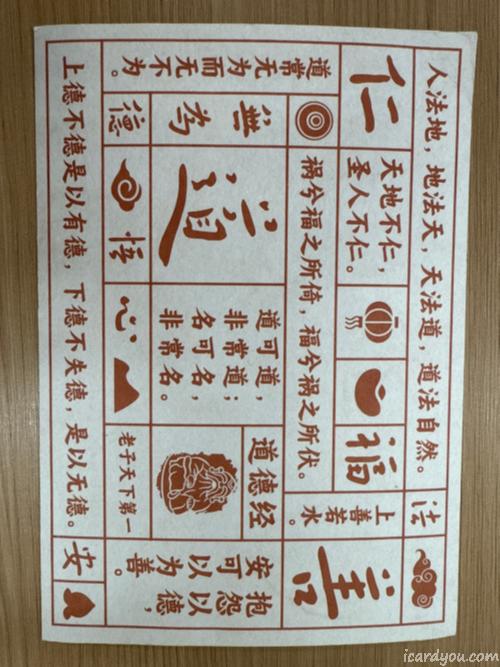 人法地，地法天，天法道，道法自然。
仁
天地不仁，
圣人不仁。
福
法
祸兮福之所倚，福兮祸之所伏。
上善
若水。
善
道常无为
而无不为。
無為
德
道
悟
道可道，
非常道；
名可名，
非常名。
心
道德经
老子天下第一
抱怨以德，
安可以为善。
安
上德不德是以有德，下德不失德，是以无德。
icardyou.com